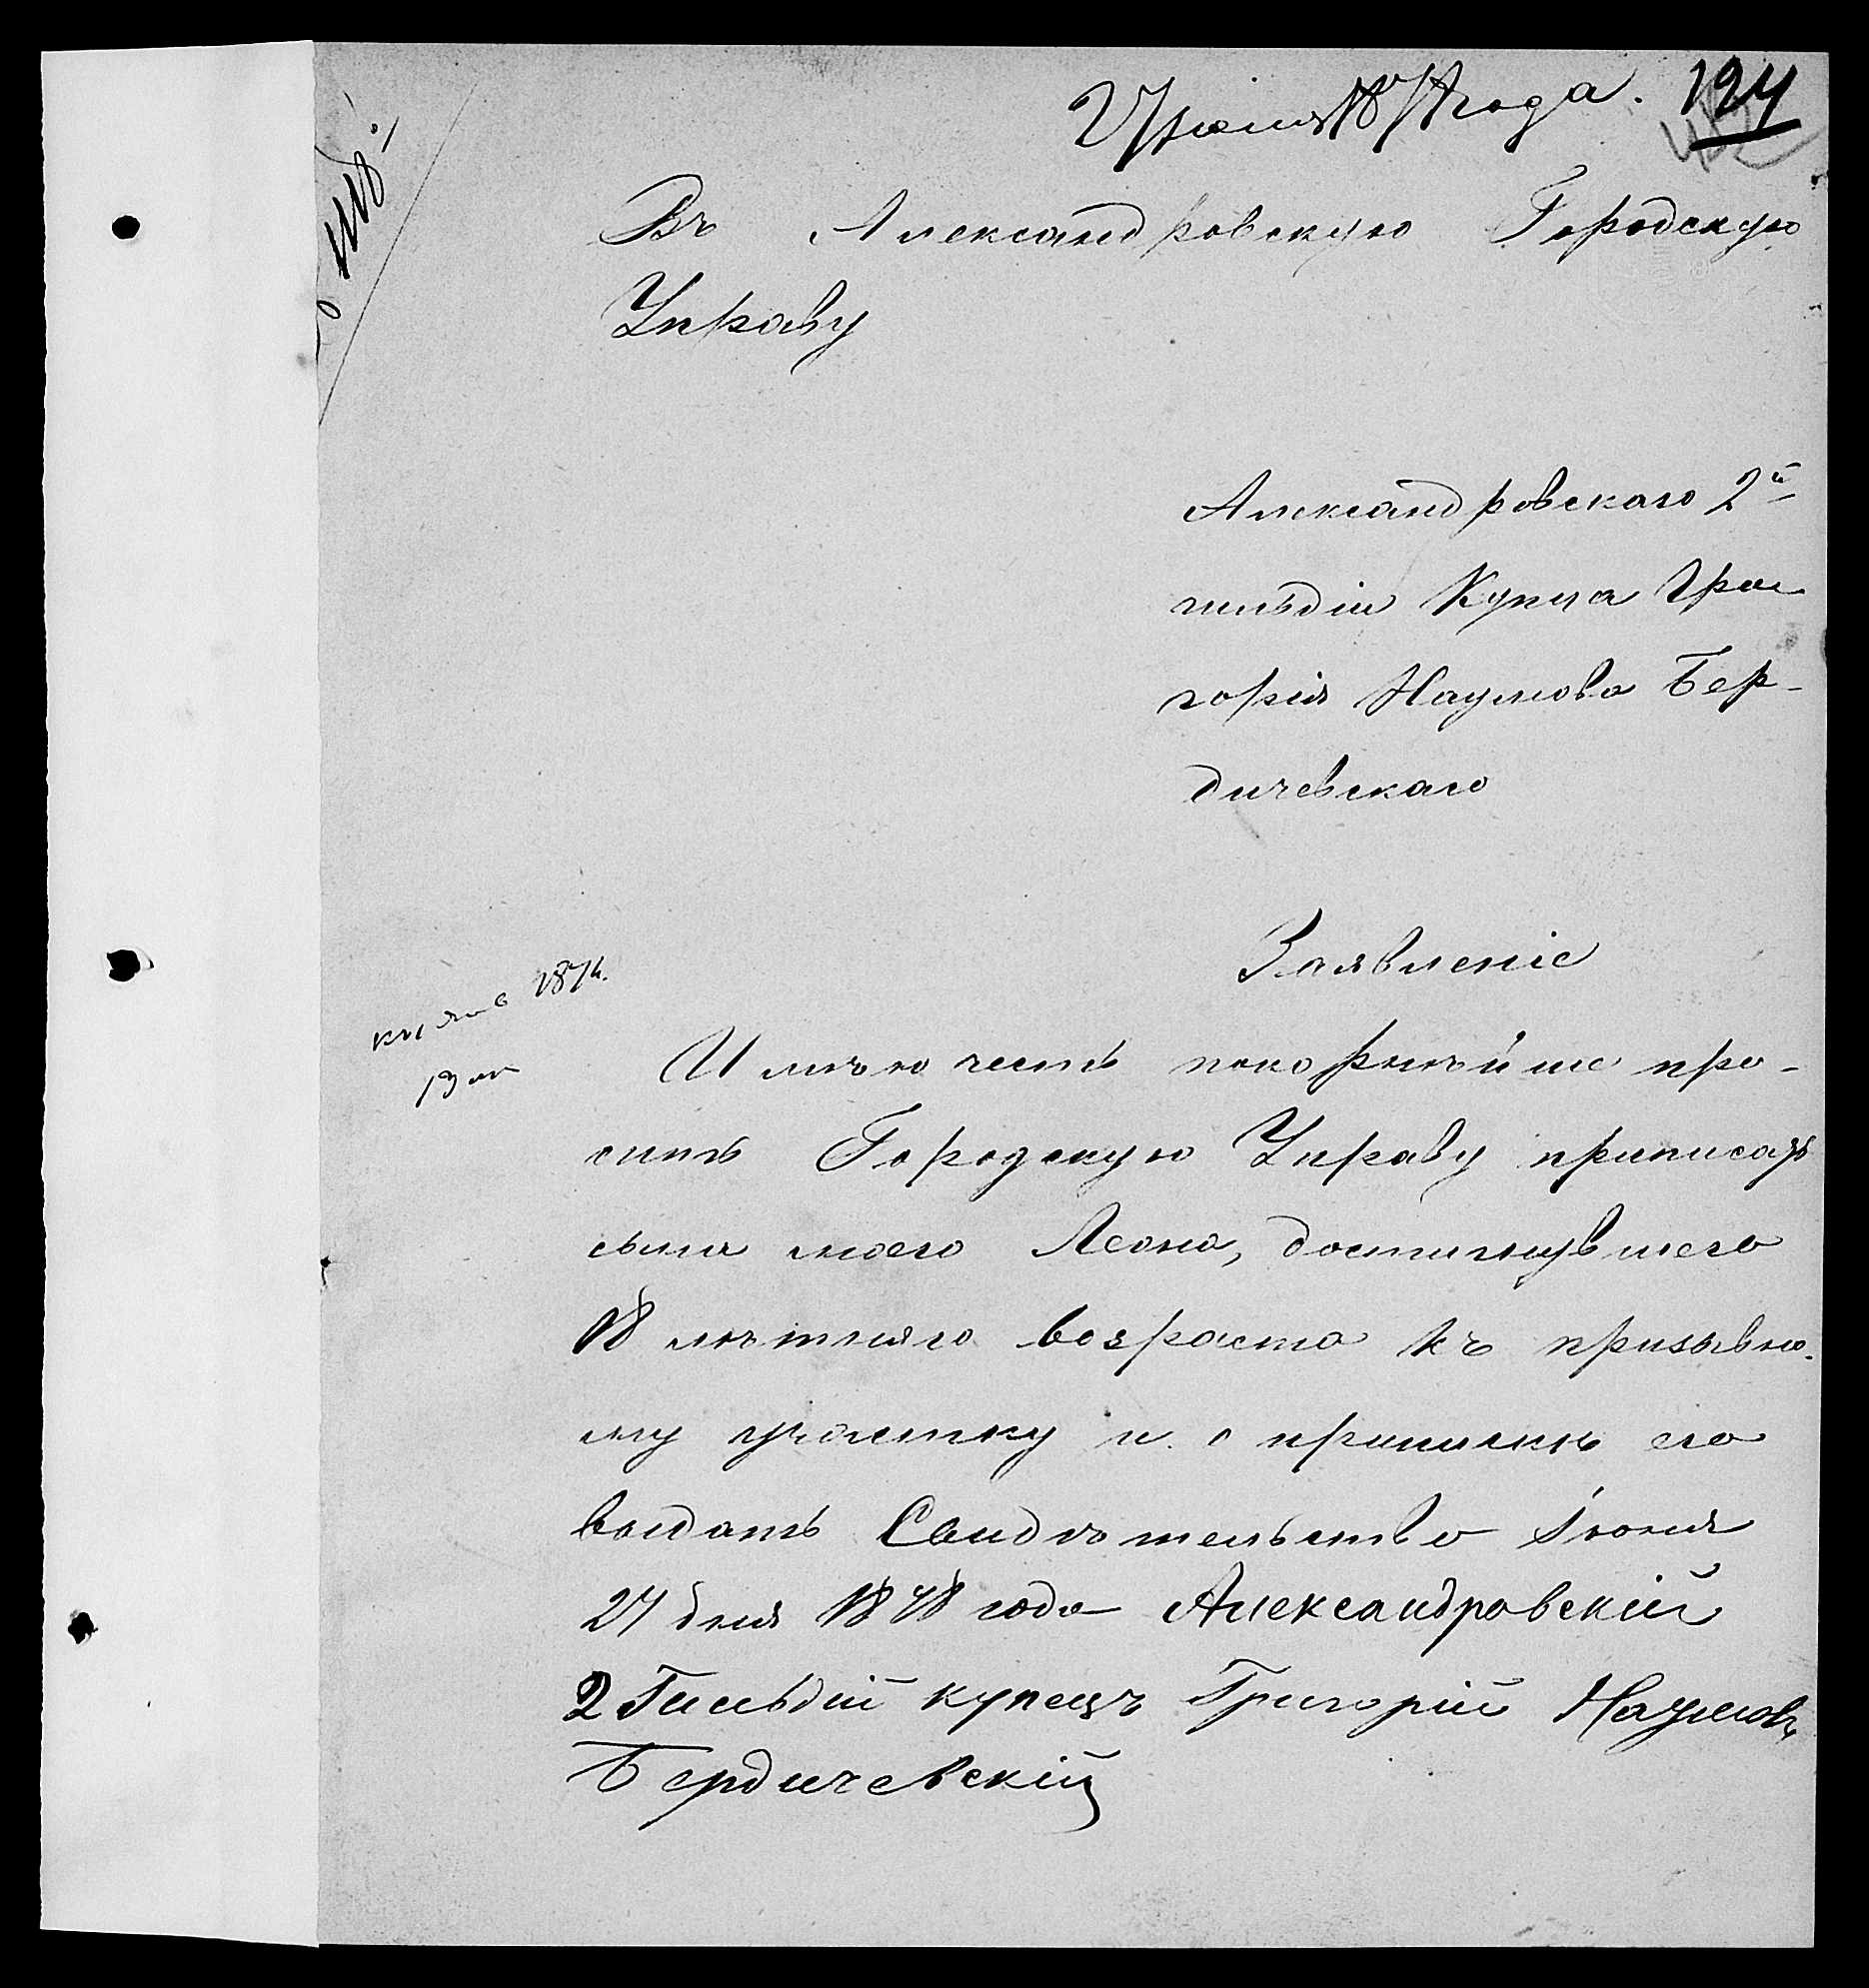 года. 124
Въ Александровскую Городскую
Управу
Александровскаго 2й
гильдіи Купца Гри
горія Наумова Бер-
дичевскаго
Заявленіе
1874.
Имѣю честь покорнѣйше про-
сить Городскую Управу приписать
сына моего Леона, достигнувшего
18 лѣтняго возраста къ призывно-
му участку и о припискѣ его
выдать Свидѣтельство Іюня
27 дня 1878 года Александровскій
2 Гильдій купецъ Григорій Наумовъ
Бердичевскій